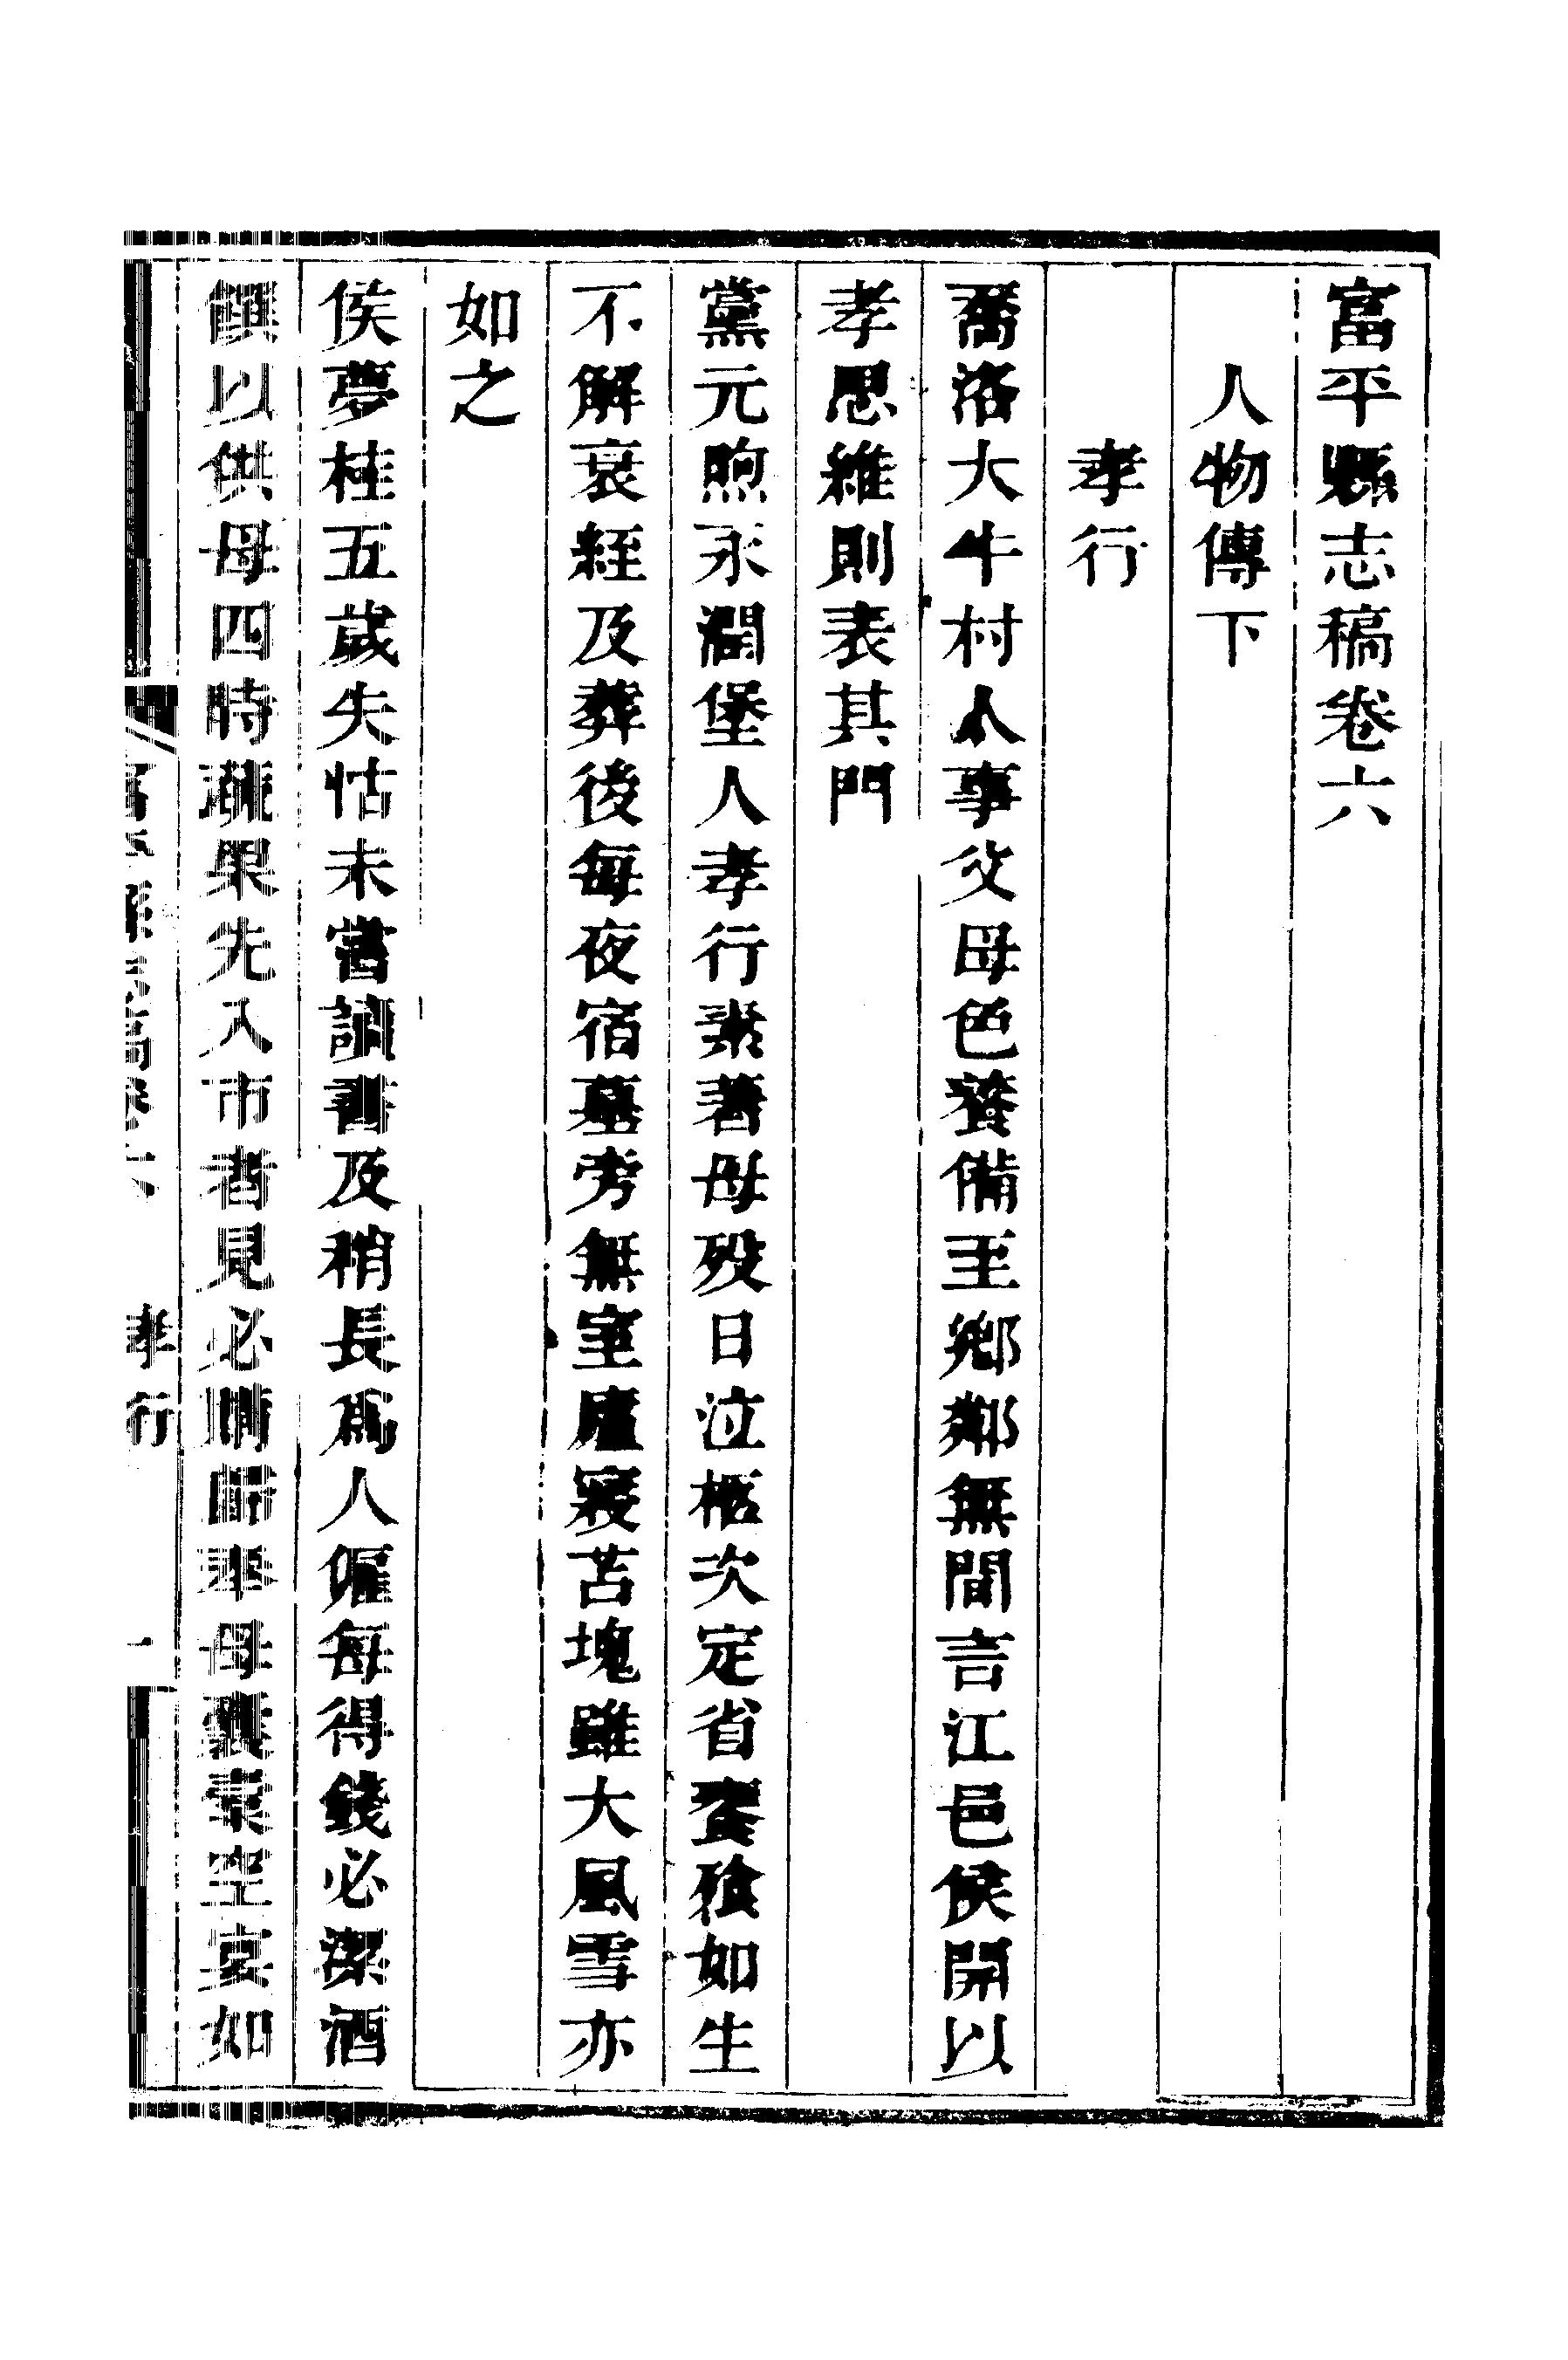 富平縣志稿卷六
人物傳下
孝行
喬洛大牛村人事父母色養備至鄉鄰無間言江邑侯開以
孝思維則表其門
黨元煦永潤堡人孝行素著母歿日泣柩次定省饔飱如生
不解衰絰及葬後每夜宿墓旁無室廬寢苫塊雖大風雪亦
如之
侯夢桂五歲失怙未嘗讀書及稍長爲人傭每得錢必潔酒
饌以供母四時蔬果先入市者見必購歸奉母囊橐空宴如
富平縣志稿卷六 孝行 一